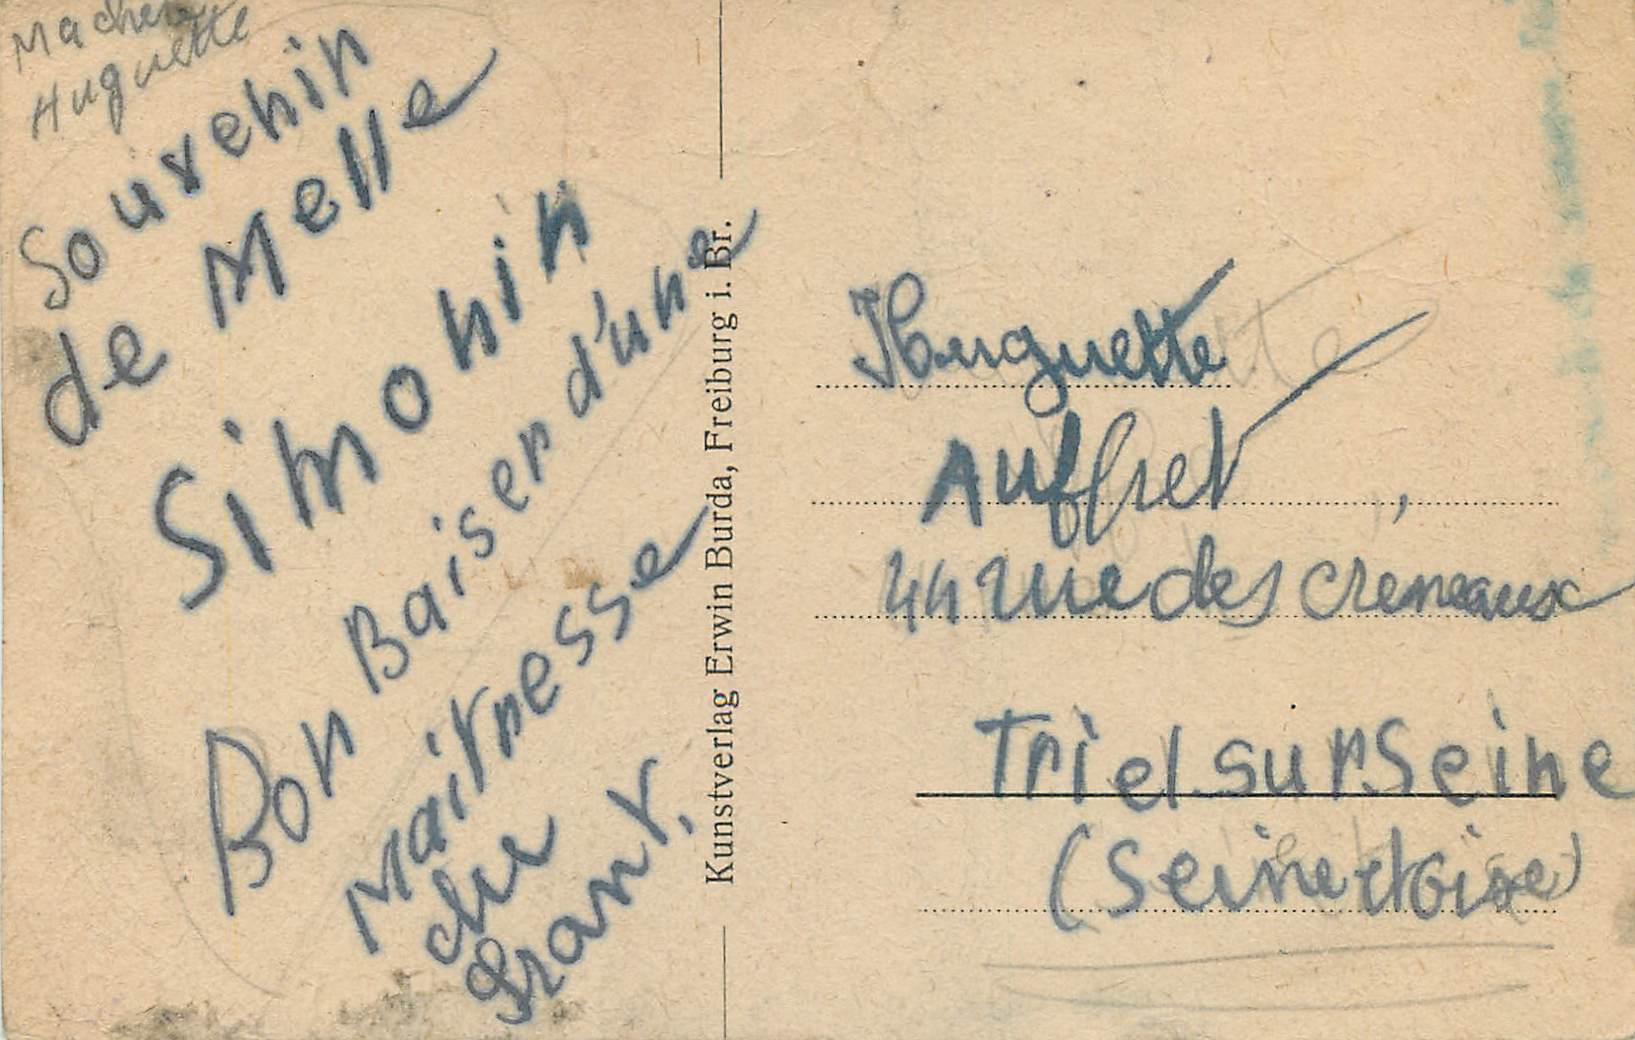 Machere
Huguette
Souvenin
de Melle
Simonin
Bon Baiser d'une
Maitresse
du
Kunstverlag Erwin Burda, Freiburg i. Br.
Huguette
Auffret
44 rue des creneaux
Triel sur Seine
(Seine et oise)